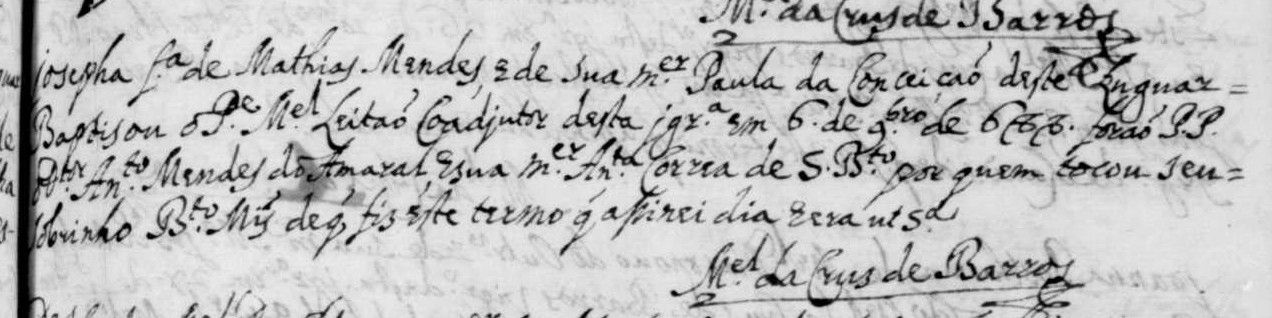 M.el da Crus de Barros
Josepha f.a de Mathias Mendes, e de sua m.er Paula da Conceicaõ deste Luguar =
Baptisou o P.e M.el Leitaõ Coadjutor desta jgr.a em 6. de 9.bro de 6 foraõ P.P.
o D.tor An.to Mendes do Amaral e sua m.er An.ta Correa de S. B.to por quem tocou seu =
sobrinho B.to Miz de q fis este termo q asinei dia e era ut s.a
M.el da Crus de Barros